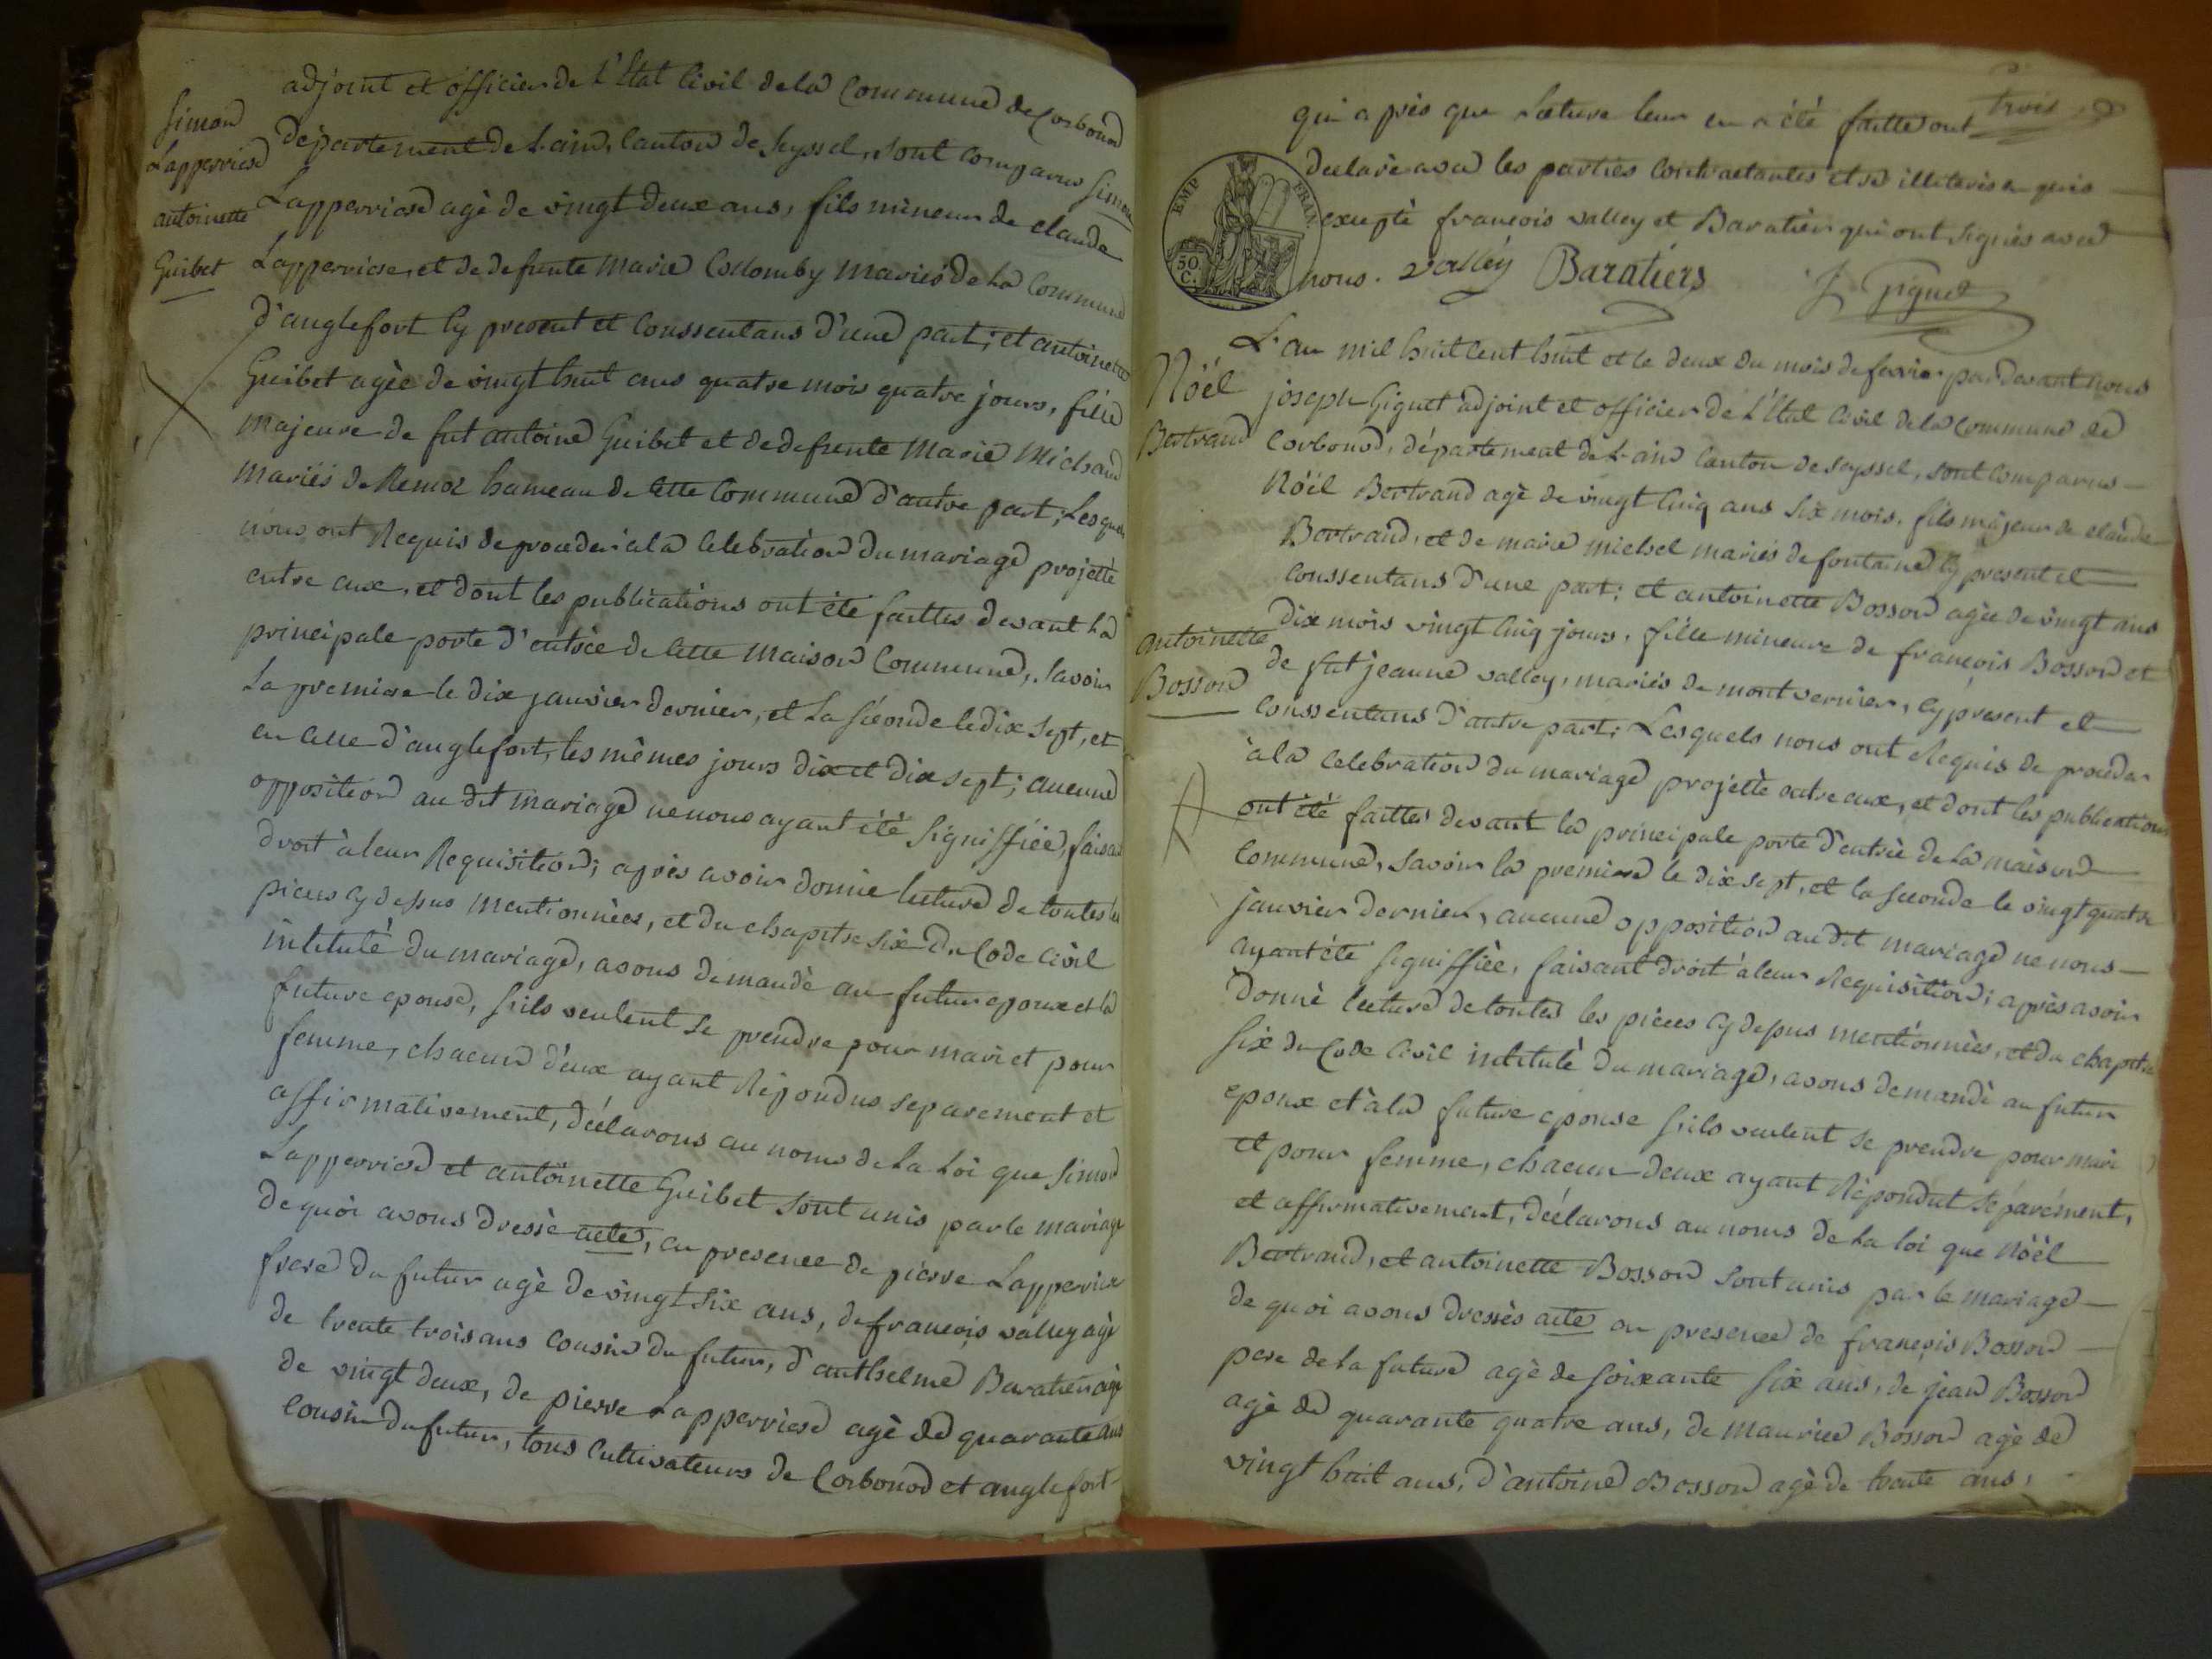 Simon
Lapperriere
antoinette
Guibet
adjoint et officier de L'Etat Civil de la Commune de Corbonod
departement de L'ain, Canton de Seyssel, sont comparus Simon
Lapperriere agè de vingt deux ans, fils mineur de claude
Lapperriere, et de defunte Marie Collomby mariés de la Commune
d'anglefort Cy present et Conssentans d'une part; et antoinette
Guibet agèe de vingt huit ans quatre mois quatre jours, fille
majeure de fut antoine Guibet et de defunte Marie Michaud
mariés de Remoz hameau de Cette Commune d'autre part; Lesquels
nous ont Requis de proceder a la Celebration du mariage projettè
entre eux, et dont les publications ont été faittes devant la
principale porte d'entrèe de Cette Maison Commune, Savoir
La premiere le dix janvier dernier, et La séconde le dix sept, et
en Celle d'anglefort, les mêmes jours dix et dix sept; aucune
opposition au dit mariage ne nous ayant été Signiffièe, faisant
droit à leur Requisition; après avoir donnè lecture de toutes les
pieces cy dessus mentionnèes, et du chapitre Six du Code Civil
intitulè du mariage, avons demandè au futur epoux et la
future epouse, s'ils veulent se prendre pour mari et pour
femme, chacun d'eux ayant Répondus separement et
affirmativement, déclarons au noms de la Loi que Simon
Lapperriere et antoinette Guibet sont unis par le mariage
de quoi avons dressè acte, en presence de pierre Lapperriere
frere du futur agè de vingt six ans, de françois valley agè
de trente trois ans Cousin du futur, d'anthelme Baratier agè
de vingt deux, de pierre Lapperriere agè de quarante ans
Cousin du futur, tous Cultivateurs de Corbonod et anglefort
trois
qui après que Lecture leur en a été faitte ont
declaré avec les parties Contractantes etre illiteris enquis
exceptè françois valley et Baratier qui ont signés avec
nous. valléy Baratiers J Giguet
EMP. FRAN.
50 C.
Nöél
Bertrand
antoinette
Bosson
L'an mil huit Cent huit et le deux du mois de fevrier pardevant nous
joseph Giguet adjoint et officier de L'Etat Civil de la Commune de
Corbonod, département de L'ain Canton de Seyssel, sont Comparus
Nöél Bertrand agè de vingt Cinq ans Six mois, fils majeur de claude
Bertrand, et de marie michel mariés de fontaine Cy present et
Conssentans d'une part; et antoinette Bosson agèe de vingt ans
Dix mois vingt Cinq jours, fille mineure de françois Bosson et
de fut jeanne valley, mariés de mont vernier, Cy present et
Conssentans d'autre part; Lesquels nous ont Requis de proceder
à la Celebration du mariage projettè entre eux, et dont les publications
ont été faittes devant la principale porte d'entrèe de la maison
Commune, Savoir la premiere le dix sept, et la séconde le vingt quatre
janvier dernier, aucune opposition au dit mariage ne nous
ayant été Signiffièe, faisant droit à leur Requisition; après avoir
Donné lecture de toutes les pièces Cy dessus mentionnèes, et du chapitre
Six du Code Civil intitulè du mariage, avons demandè au futur
epoux et à la future epouse s'ils veulent se prendre pour mari
et pour femme, chacun deux ayant Répondut Séparément,
et affirmativement, déclarons au noms de la loi que Nöél
Bertrand, et antoinette Bosson sont unis par le mariage
de quoi avons dressés acte en presence de françois Bosson
pere de la future agè de soixante six ans, de jean Bosson
agè de quarante quatre ans, de maurice Bosson agè de
vingt huit ans, d'antoine Bosson agè de trente ans,